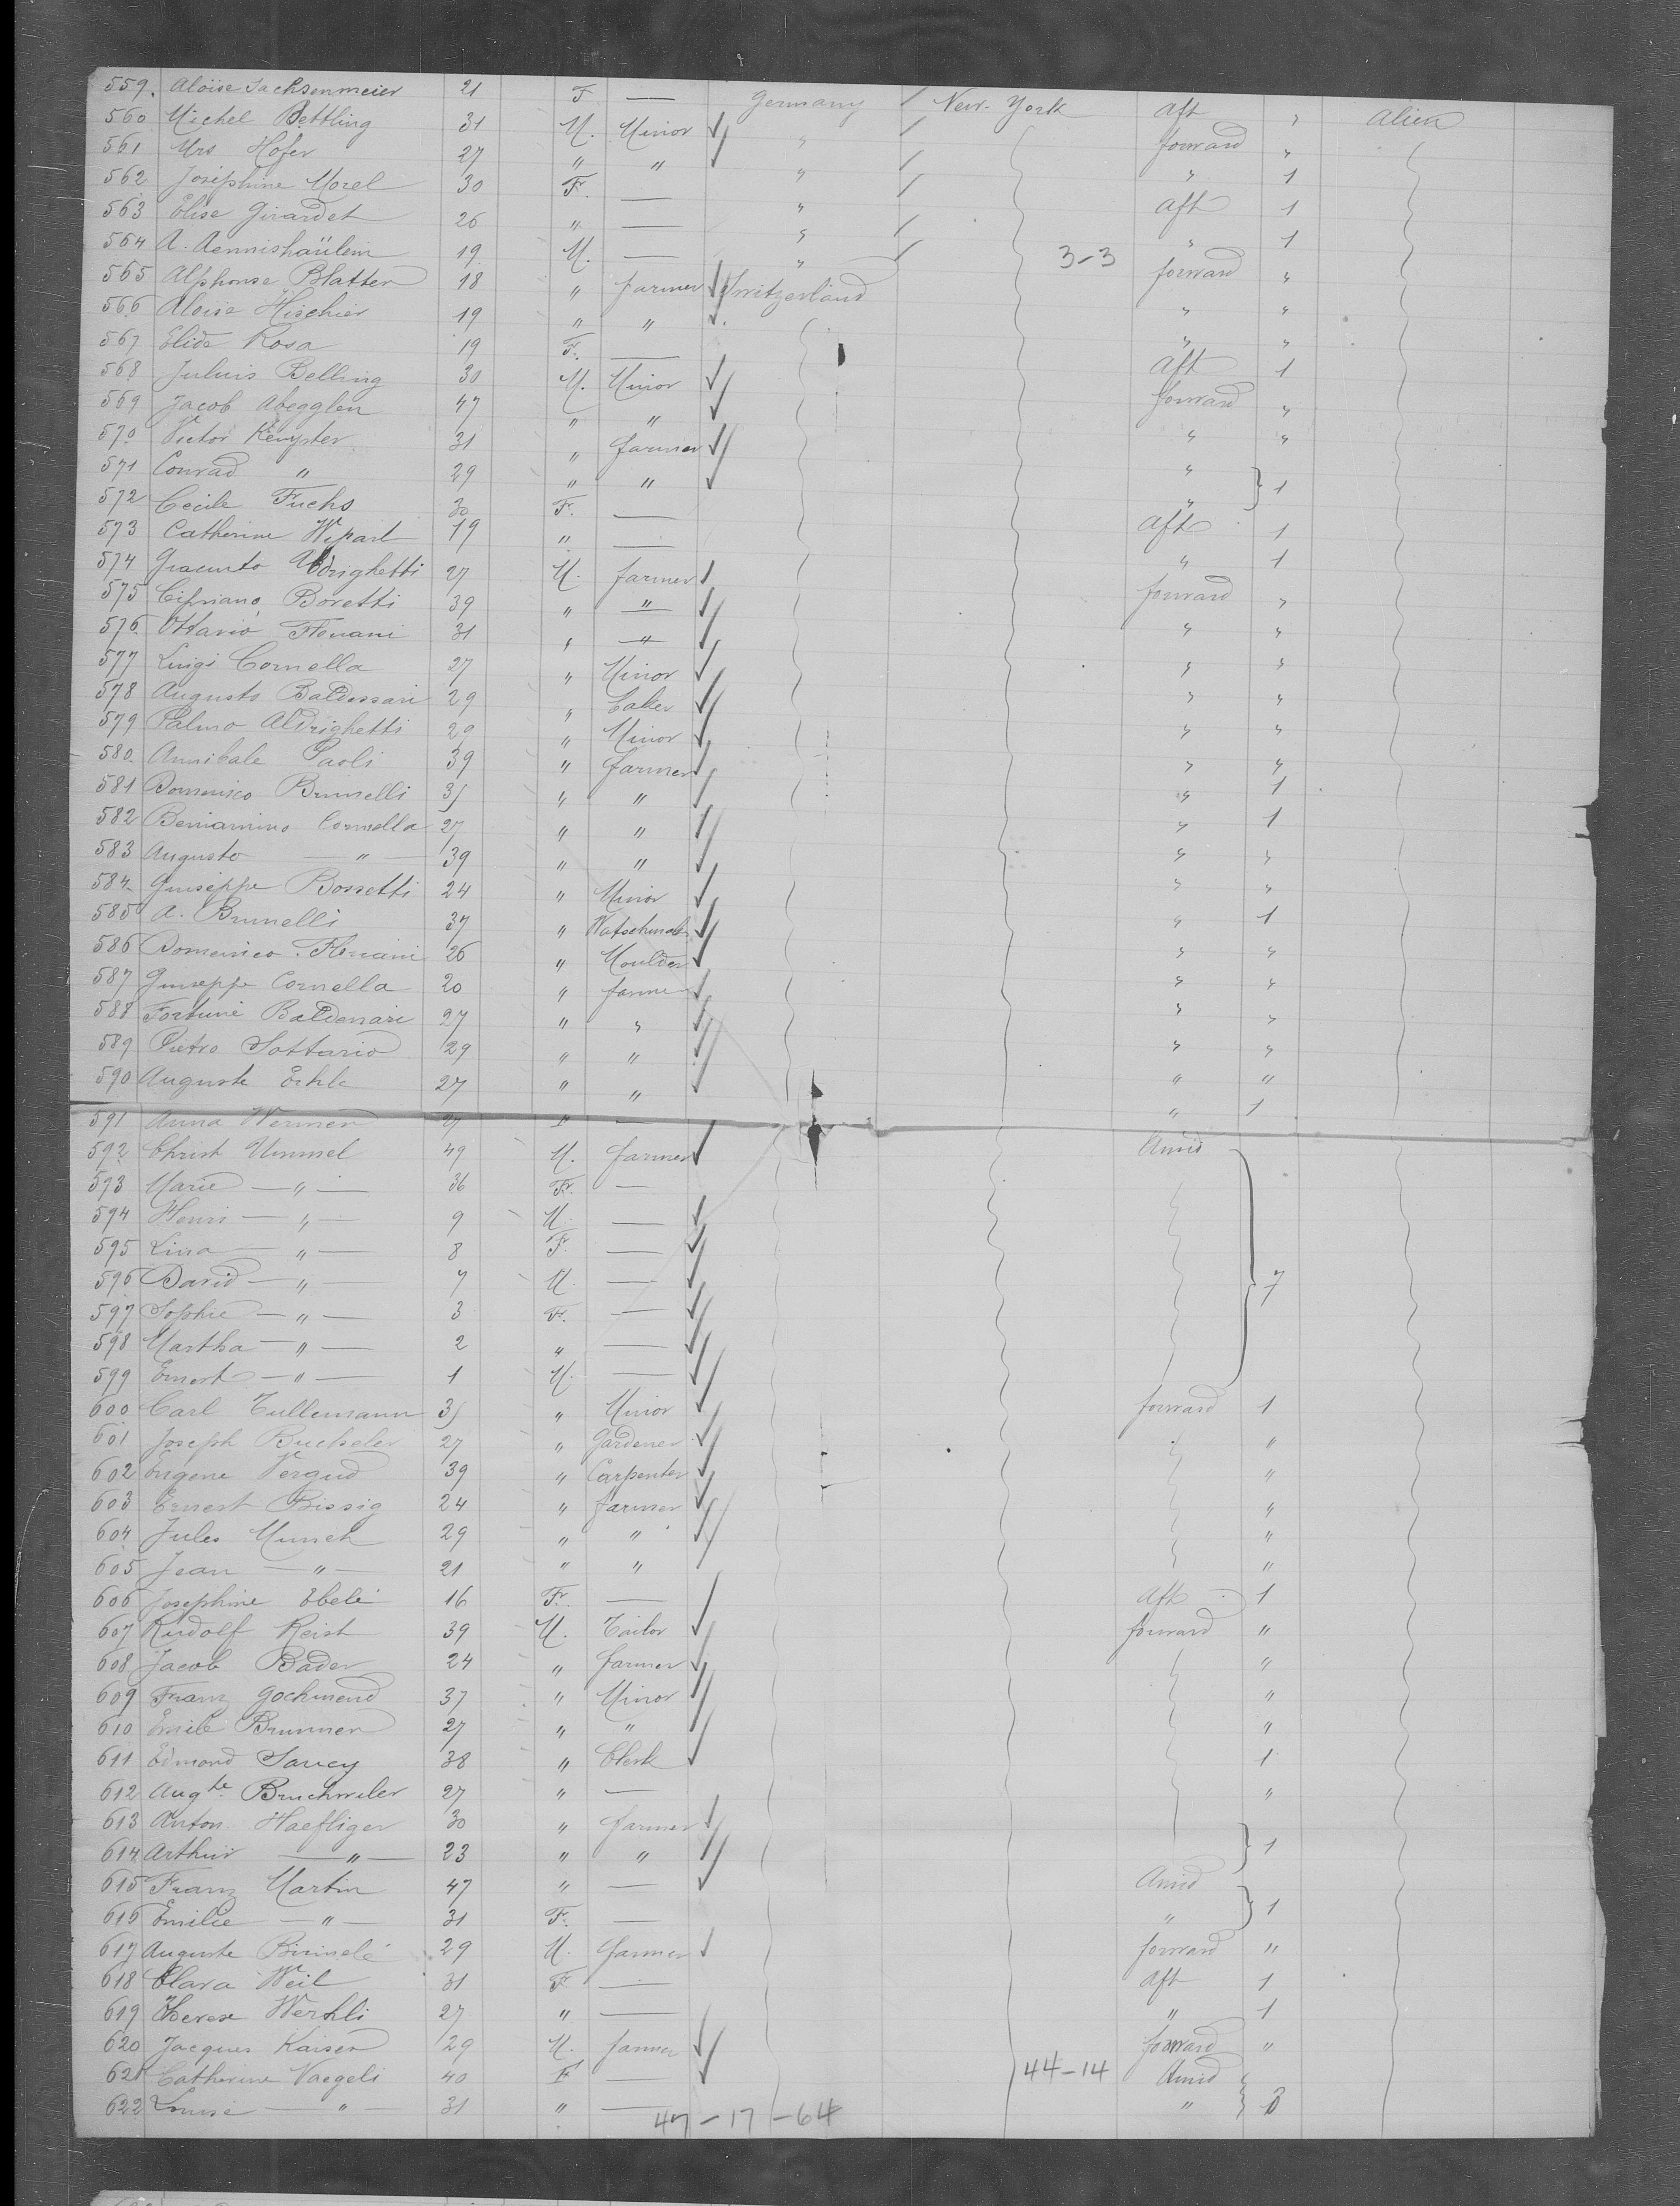 559. Aloïse Sachsenmeier 21 F — Germany / New-York Aft " Alien
560 Michel Bettling 31 M. Minor " / forward "
561 Mrs Hofer 27 " " " / " 1
562 Josephine Morel 30 F. — " / Aft 1
563 Elise Girardet 26 " — " / " 1
564 A. 19 M. — " / 3-3 forward "
565 Alphonse Blatter 18 " farmer Switzerland " "
566 Aloïse Hischier 19 " " " "
567 Elide Rosa 19 F. — Aft 1
568 Julius Belling 30 M. Minor forward "
569 Jacob Abegglen 47 " " " "
570 Victor 31 " farmer "
571 Conrad " 29 " " " 1
572 Cecile Fuchs 30 F. — Aft 1
573 Catherine 19 " — " 1
574 Giacinto Aldrighetti 27 M. farmer forward "
575 Cipriano Boretti 39 " " " "
576 Ottavio 31 " " " "
577 Luigi Cornella 27 " Minor " "
578 Augusto Baldessari 29 " " "
579 Palmo Aldrighetti 29 " Minor " "
580 Annibale Paoli 39 " farmer " 1
581 Domenico Brunelli 31 " " " 1
582 Beniamino Cornella 27 " " " "
583 Augusto — " — 39 " " " "
584 Guiseppe Bossetti 24 " Minor " 1
585 A. Brunelli 37 " " "
586 Domenico 26 " Moulder " "
587 Guiseppe Cornella 20 " farmer " "
588 Baldessari 27 " " " "
589 Pietro Sottario 29 " " " "
590 Auguste 27 " " " 1
591 Anna Werner 27 F — Amid
592 Christ Ummel 49 M. farmer
593 Marie — " — 36 F. —
594 Henri — " — 9 M. —
595 Lina — " — 8 F. —
596 David — " — 7 M. — 7
597 Sophie — " — 3 F. —
598 Martha — " — 2 " —
599 Ernest — " — 1 M. —
600 Carl Tullemann 31 " Minor forward 1
601 Joseph Bucheler 27 " Gardener "
602 Eugene Vergud 39 " Carpenter "
603 Ernest Bissig 24 " farmer "
604 Jules Munch 29 " " "
605 Jean — " — 21 " " "
606 Josephine Ebelé 16 F. — Aft 1
607 Rudolf Reist 39 M. Tailor forward "
608 Jacob Bader 24 " farmer "
609 Franz Gochmend 37 " Minor "
610 Emile Brunner 27 " " "
611 Edmond Saucy 38 " Clerk 1
612 Aug.te Bruchwiler 27 " — "
613 Anton Haefliger 30 " farmer
614 Arthur — " — 23 " " 1
615 Franz Martin 47 " — Amid
616 Emilie — " — 31 F. — " 1
617 Auguste 29 M. farmer forward "
618 Clara Weil 31 F — Aft 1
619 Therese Werhli 27 " — " 1
620 Jacques Kaiser 29 M. farmer forward "
621 Catherine Naegeli 40 F — 44-14 Amid
622 Louise — " — 31 " — "
47-17-64